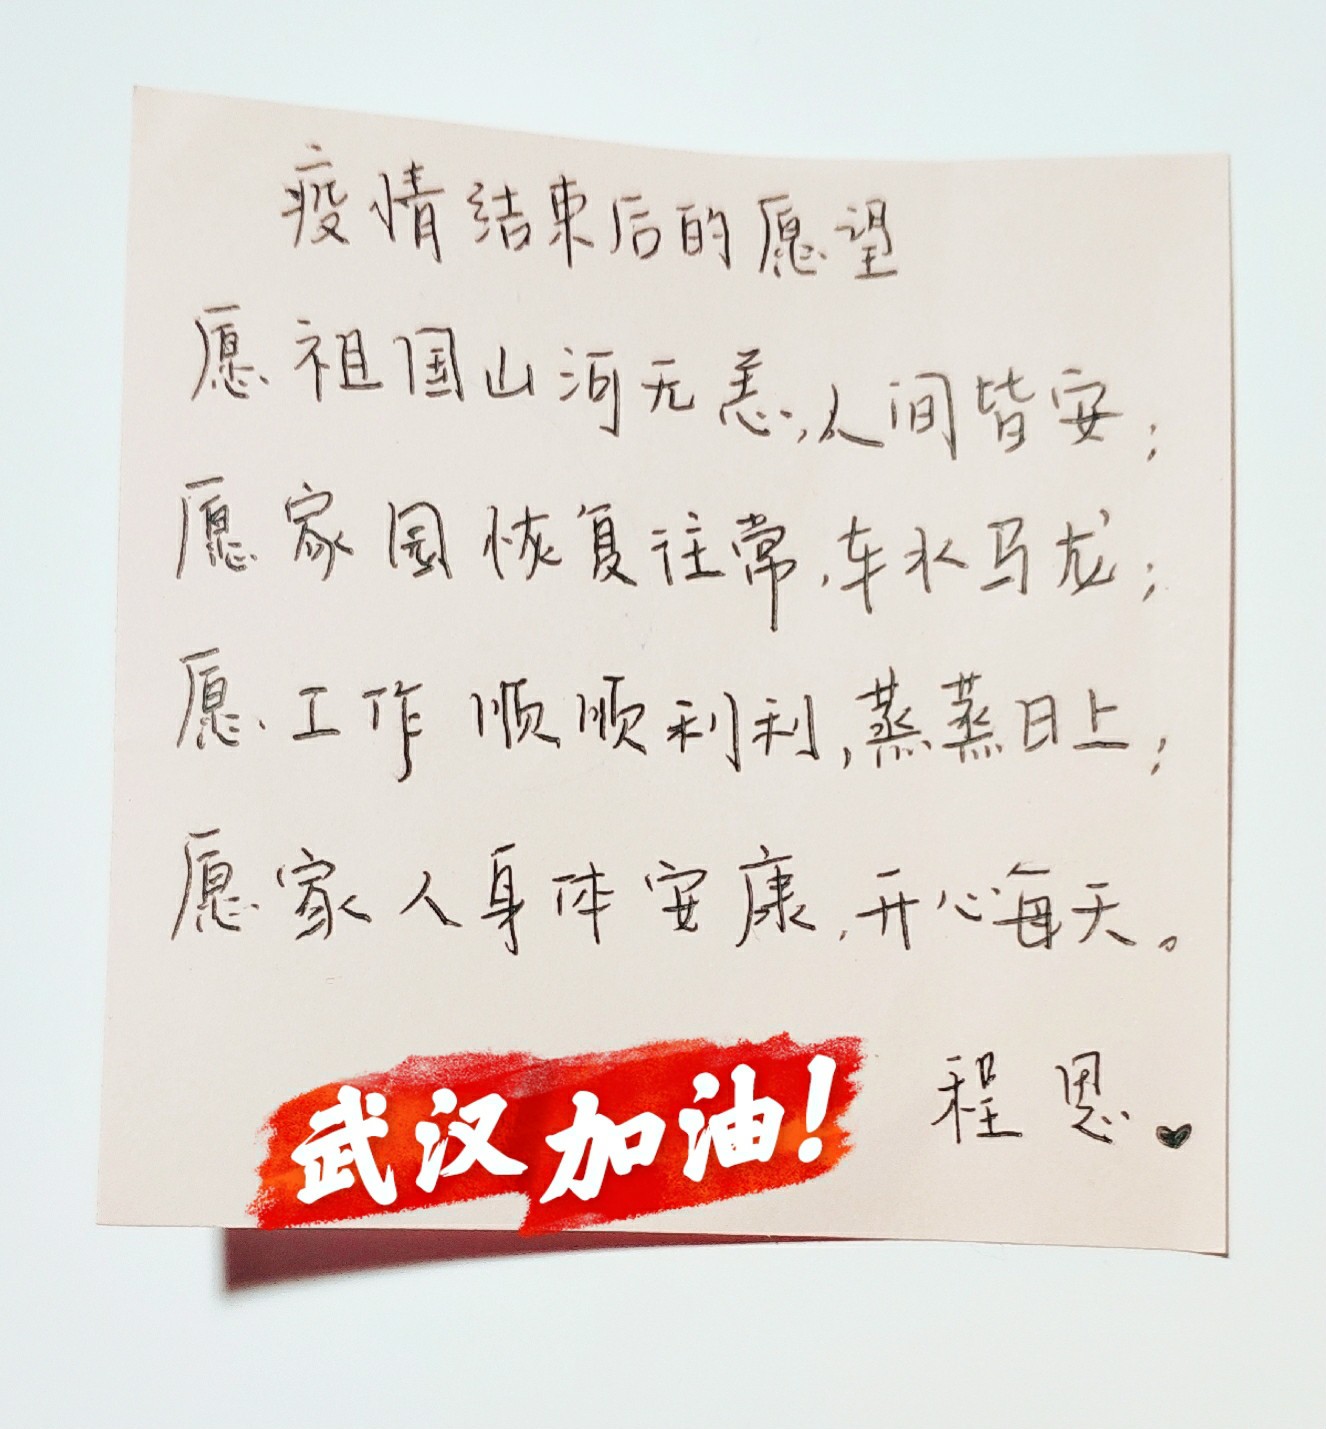 疫情结束后的愿望
愿祖国山河无恙,人间皆安;
愿家园恢复往常,车水马龙;
愿工作顺顺利利,蒸蒸日上;
愿家人身体安康,开心每天。
程恩
武汉加油!